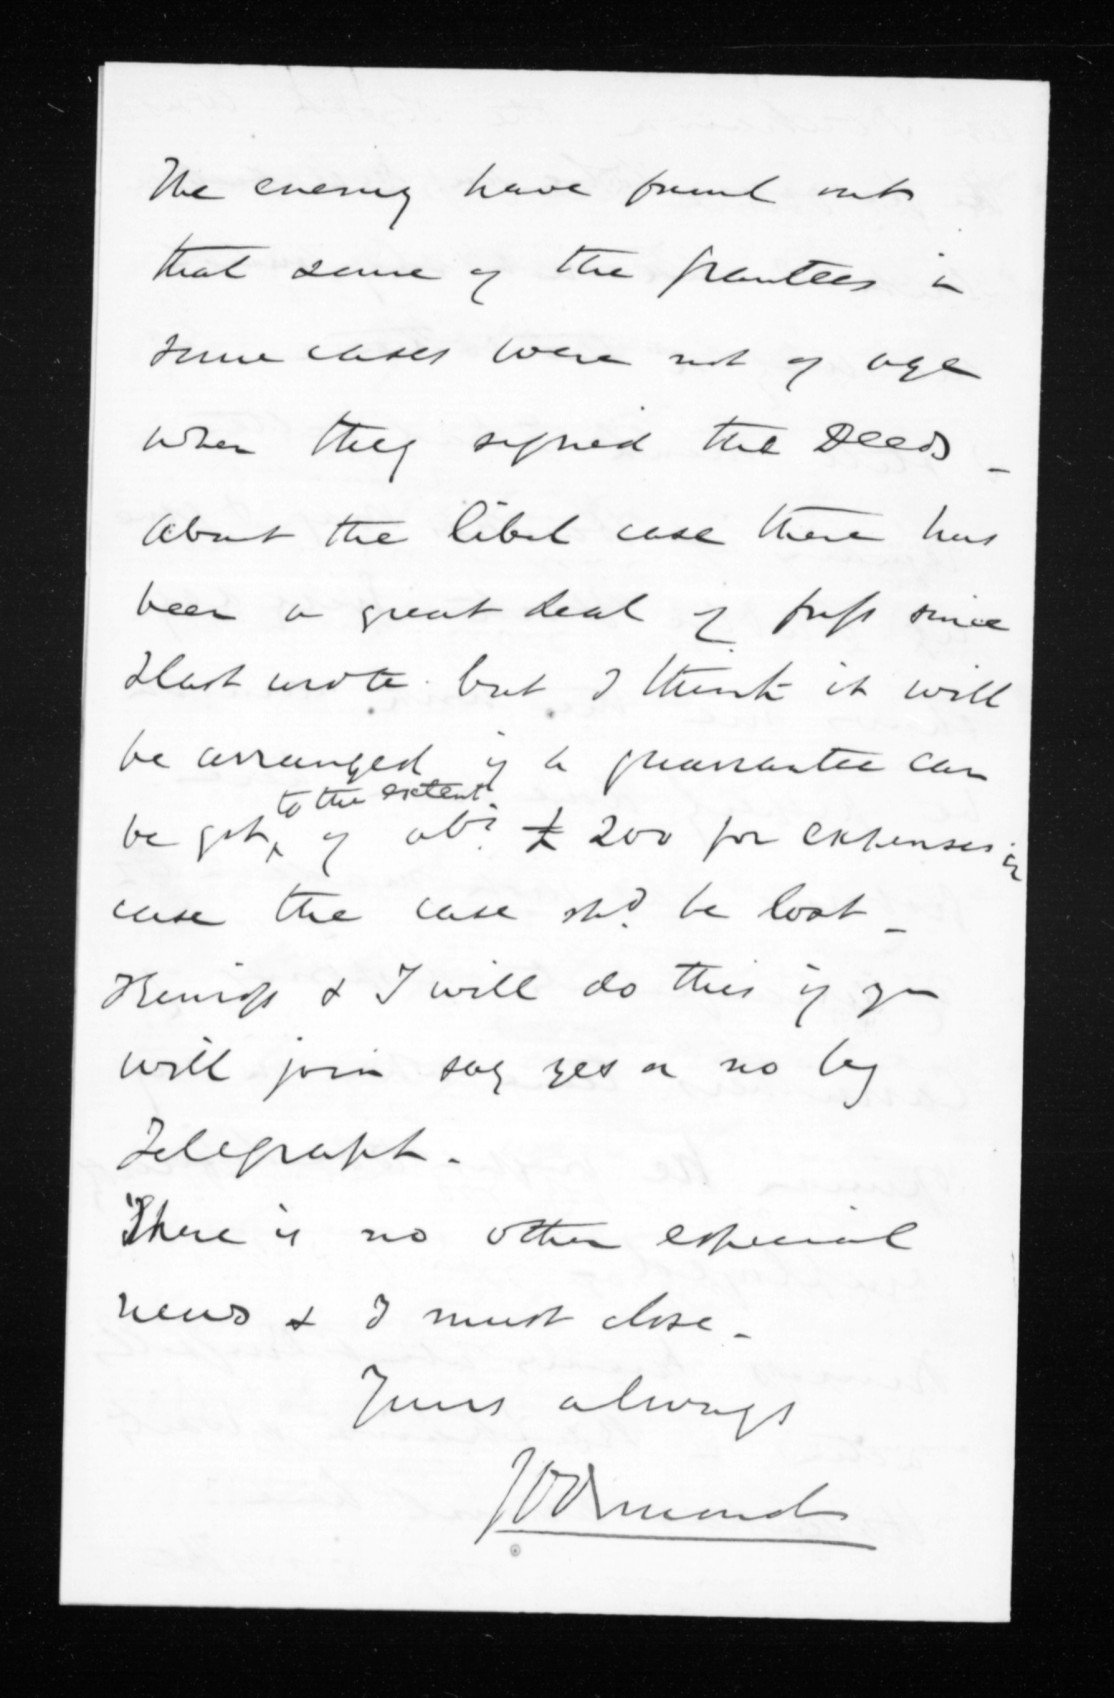 The enemy have found out
that some of the grantees in
some cases were not of age
when they signed the Deeds _
About the libel case there has
been a great deal of fuss since
I last wrote. but I think it will
be arranged if a guarantee can
be got to the extent of abt. £200 for expenses in
case the case shd. be lost _
& I will do this if you
will join say yes or no by
Telegraph.
There is no other especial
news & I must close _
Yours always
J D Ormond